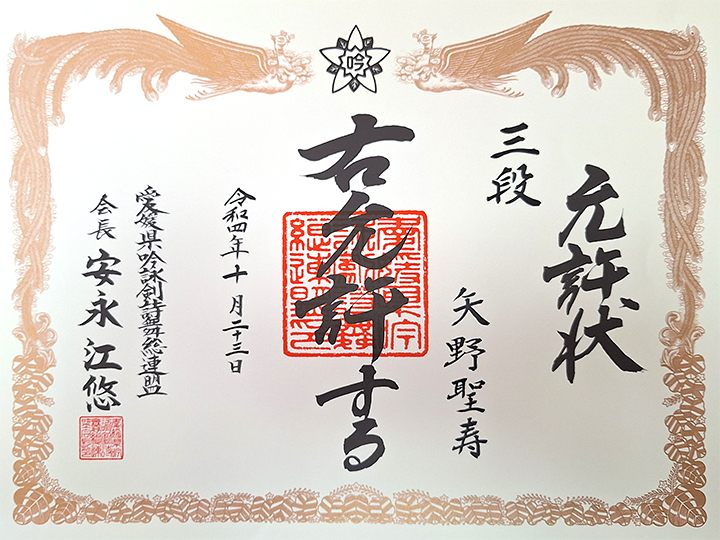 吟
允許状
三段
矢野聖寿
右允許する
令和四年十月二十三日
愛媛県吟詠剣詩舞総連盟
会長 安永江悠